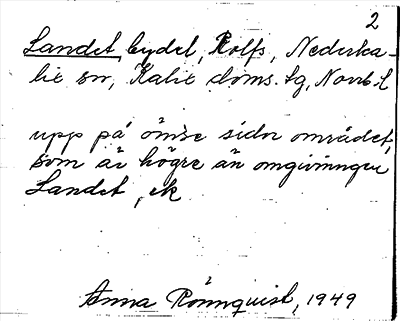 2
Landet, bydel, Rolfs, Nederka-
lix sn, Kalix doms. lg, Norrb. l
upp på ömse sidor området,
som är högre än omgivningen
Landet, ek
Anna Rönnquist, 1949